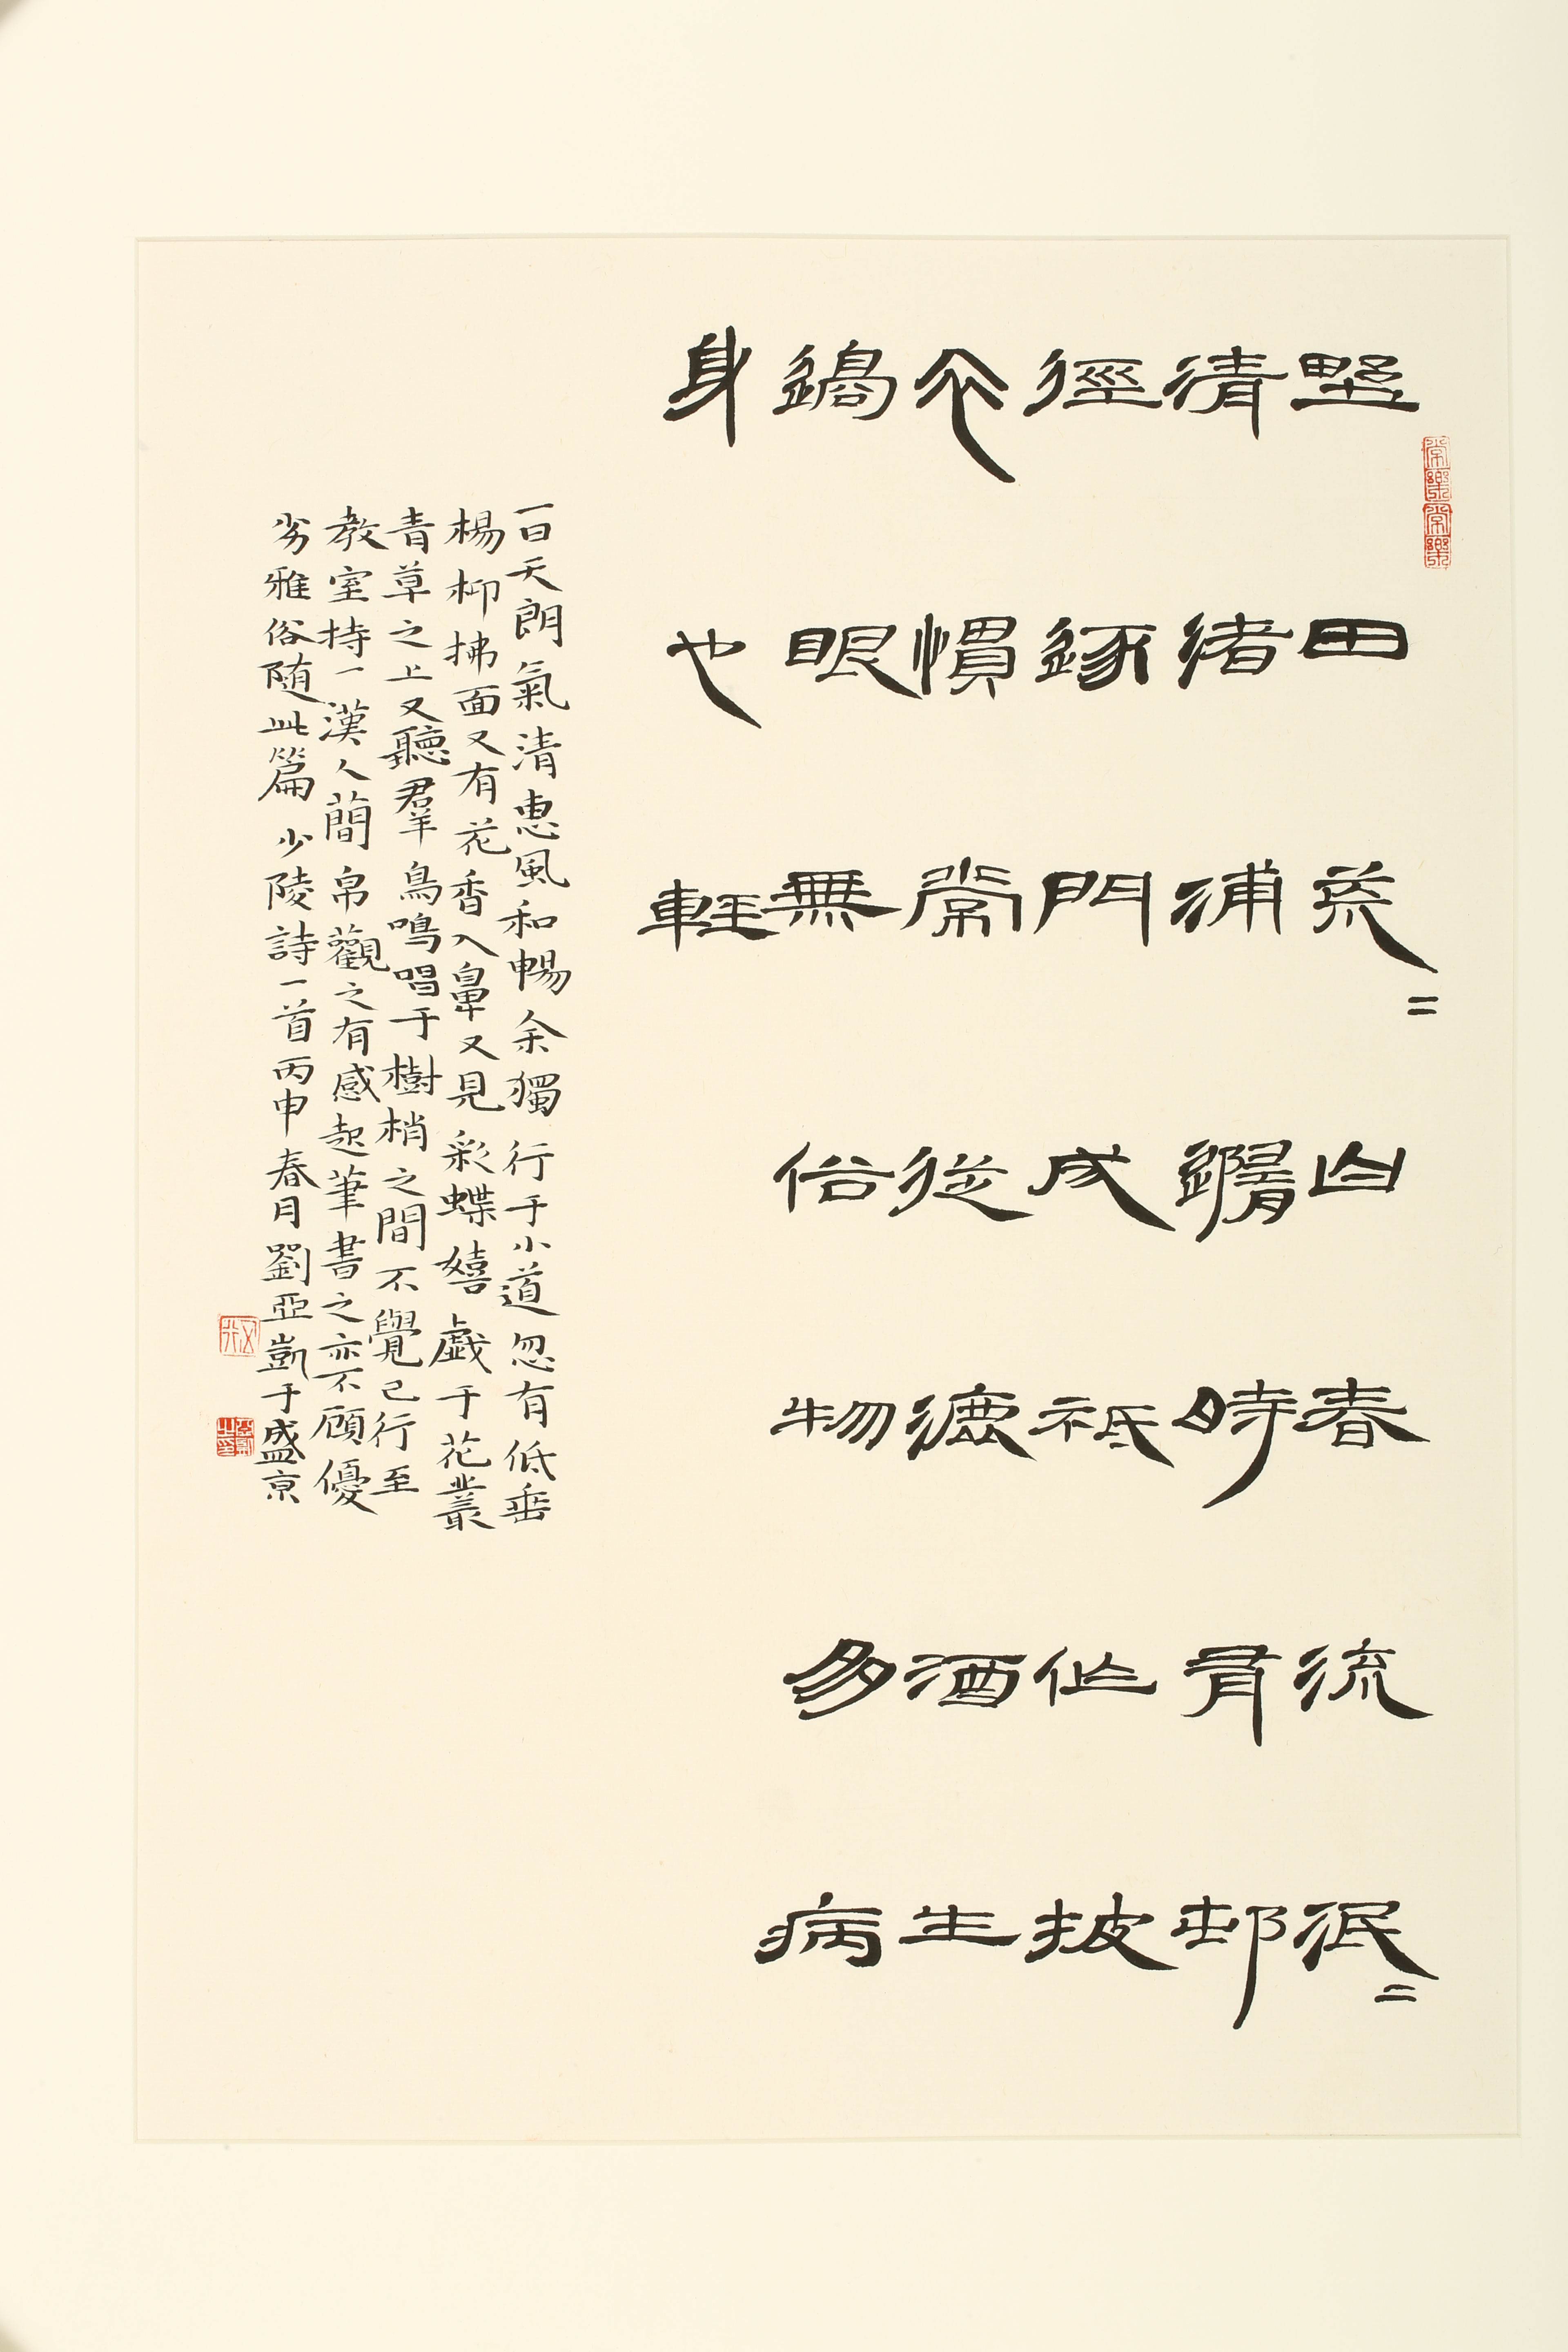 野日荒=白春流泯=
清渚浦隨時有邨
徑逐門成祗作披
衣慣常從漉酒生
過眼無俗物多病
身也輕
一日天朗氣清惠風和暢余獨行于小道忽有低垂
楊柳拂面又有花香入鼻又見彩蝶嬉戲于花叢
青草之上又聽羣鳥鳴唱于樹梢之間不覺已行至
教室持一漢人簡帛觀之有感起筆書之亦不顧優
劣雅俗隨此篇少陵詩一首丙申春月劉亞凱于盛京
常樂
常樂